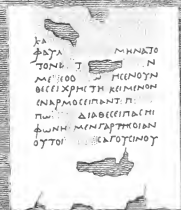 κα
φαυλ ΜΗΝΑΤΟ
ΤΟΝ Τ Ν
ΜΕ ΕΟΘ Ν ΗCΕΝΟΥΝ
ΘΕCΕΙ ΧΡΗCΤΗ ΚΕΙΜΕΝΟΝ
ΕΝΑΡΜΟCΕΙΠΑΝΤ Π
ΠΩ ΔΙΑΘΕCΕΙΠΑCΗΙ
ΦΩΝΗ ΜΕΝΓΑΡΤΗΟΙΑΝ
ΟΥΤΟΙ ΕΑΓΟΥCΙΝΟΥ